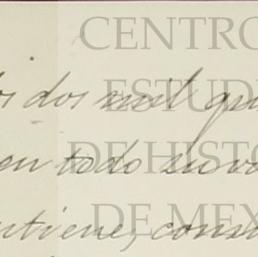 CENTRO
ESTUDI
DE HISTO
DE MEX
os dos mil qui
en todo su va
ntiene, const